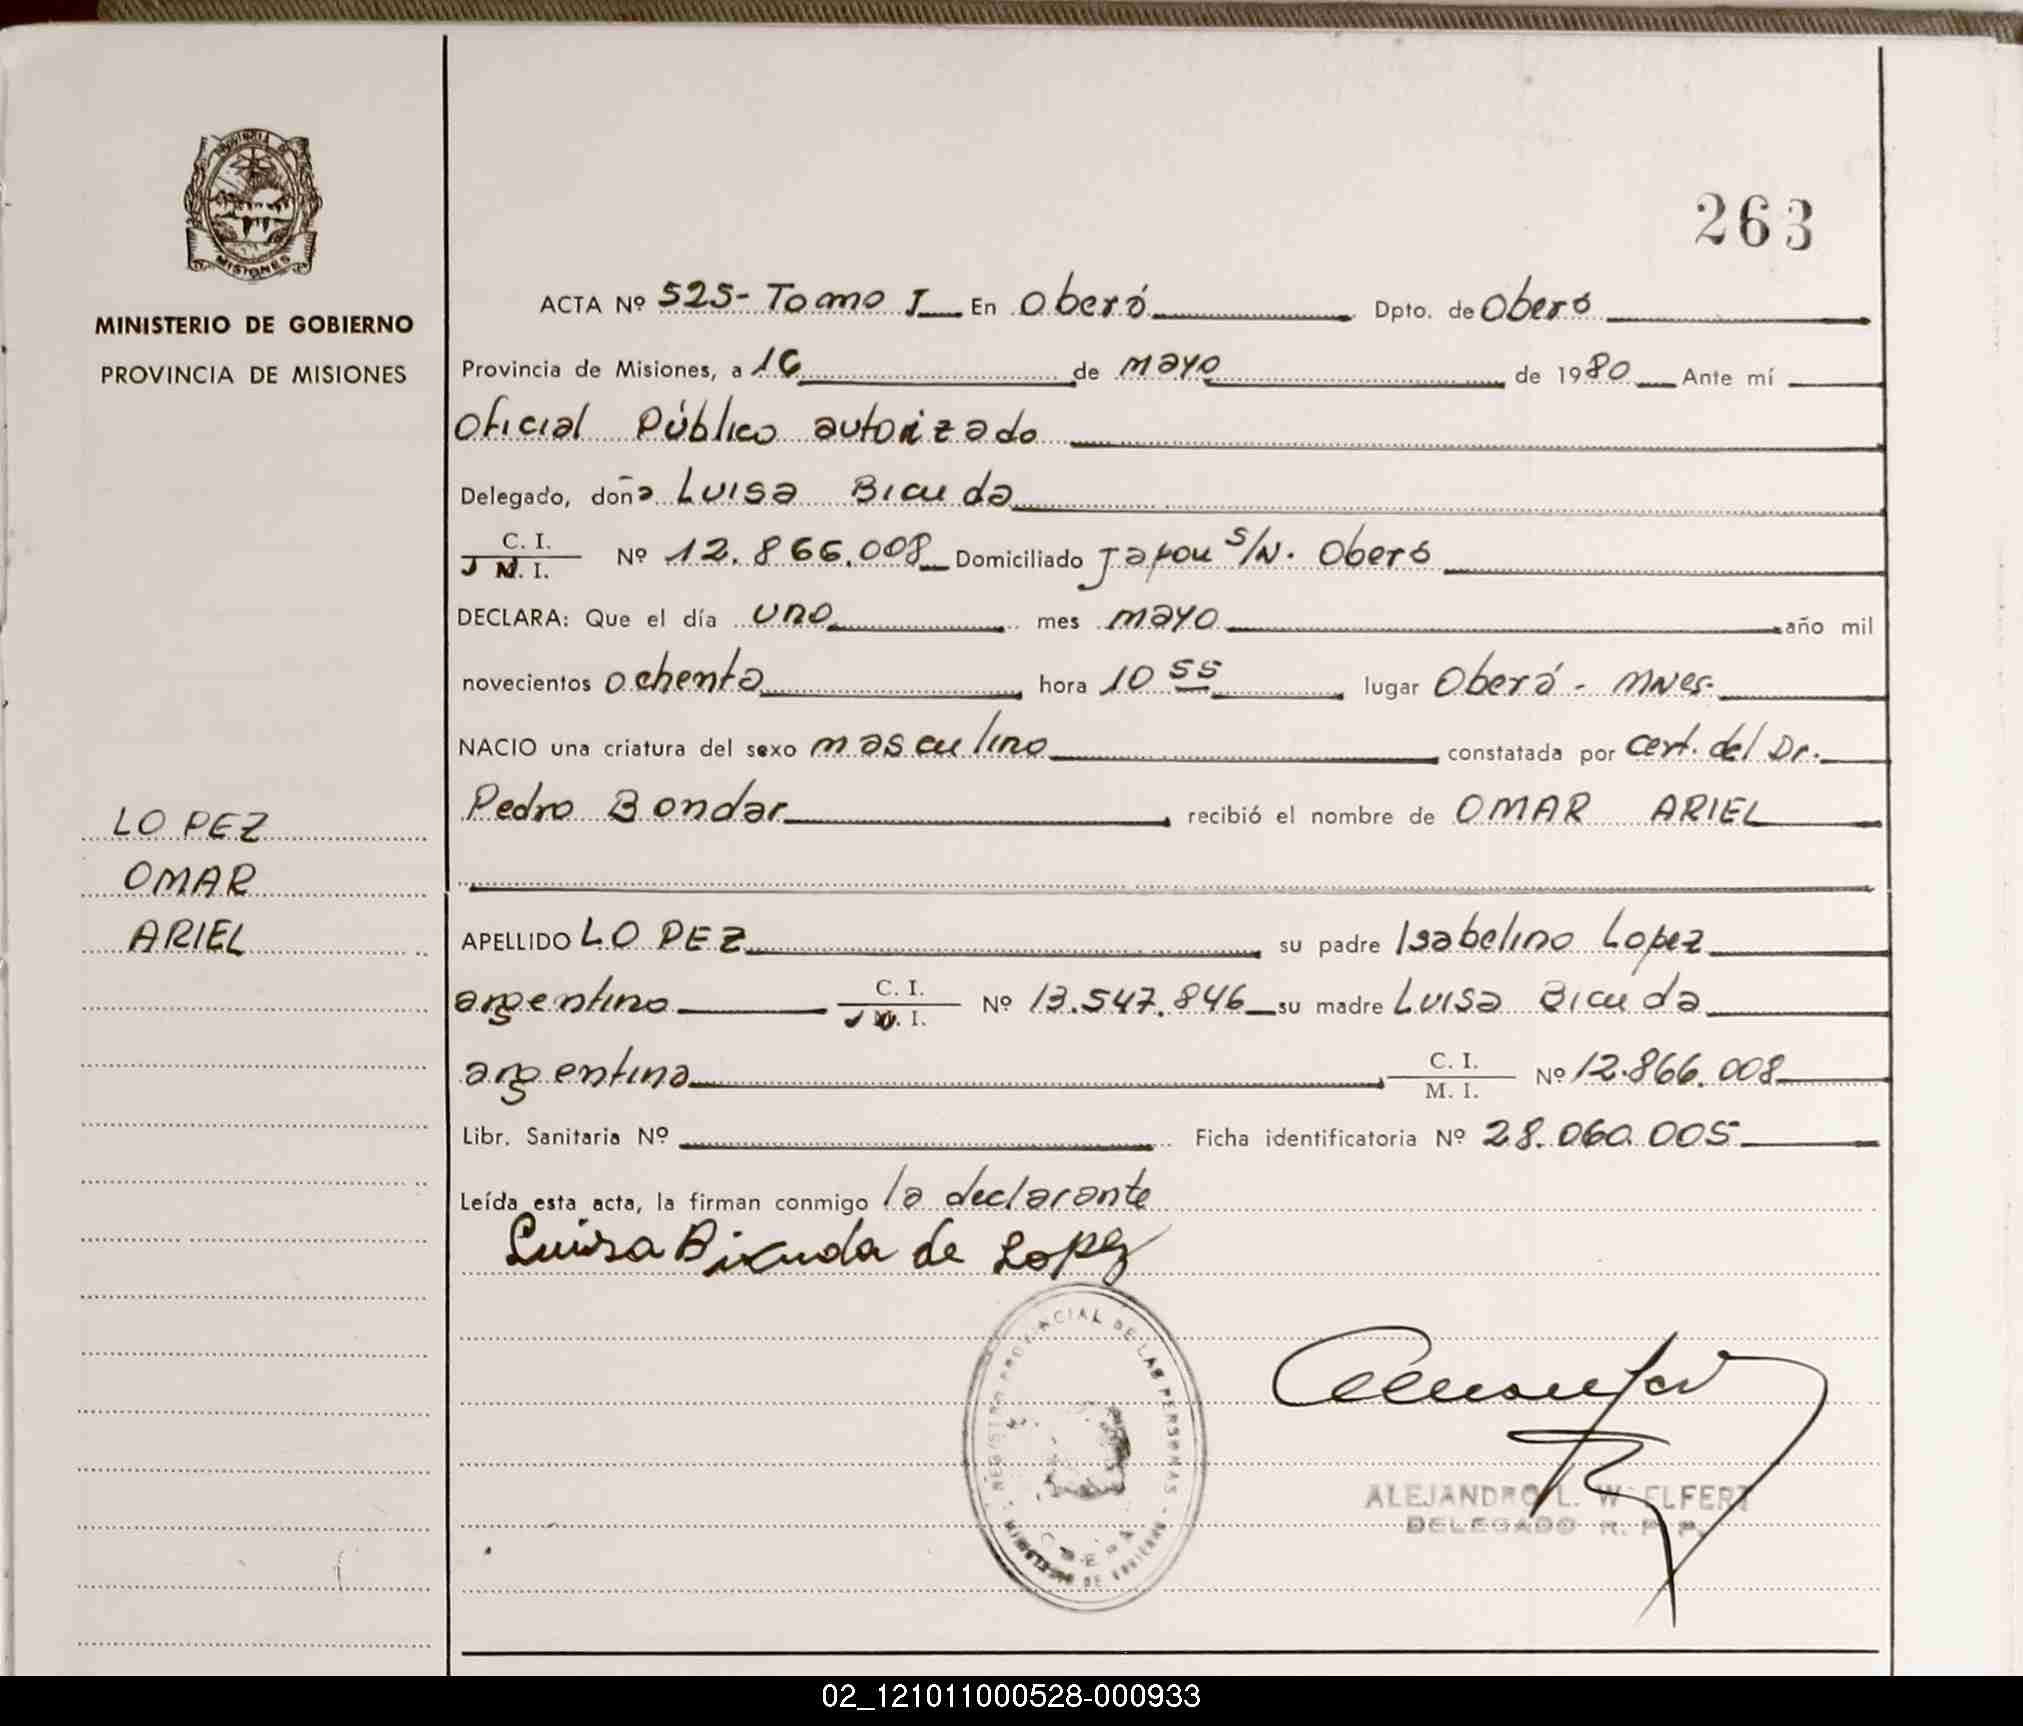 263
PROVINCIA DE
MISIONES
MINISTERIO DE GOBIERNO
PROVINCIA DE MISIONES
ACTA Nº 525- Tomo I En Oberá Dpto. de Oberá
Provincia de Misiones, a 16 de mayo de 1980 Ante mí
Oficial Público autorizado
Delegado, doña Luisa Bicuda
C. I.
M. I. Nº 12.866.008 Domiciliado Japon S/N. Oberá
DECLARA: Que el día uno mes mayo año mil
novecientos ochenta hora 10 55 lugar Oberá - Mnes.
NACIO una criatura del sexo masculino constatada por cert. del Dr.
Pedro Bondar recibió el nombre de OMAR ARIEL
LOPEZ
OMAR
ARIEL
APELLIDO LOPEZ su padre Isabelino Lopez
argentino C. I.
M. I. Nº 13.547.846 su madre Luisa Bicuda
argentina C. I.
M. I. Nº 12.866.008
Libr. Sanitaria Nº Ficha identificatoria Nº 28.060.005
Leída esta acta, la firman conmigo la declarante
Luisa Bicuda de Lopez
REGISTRO PROVINCIAL DE LAS PERSONAS
MINISTERIO DE GOBIERNO
ALEJANDRO L. W. ELFERT
DELEGADO R. P. P.
02_121011000528-000933